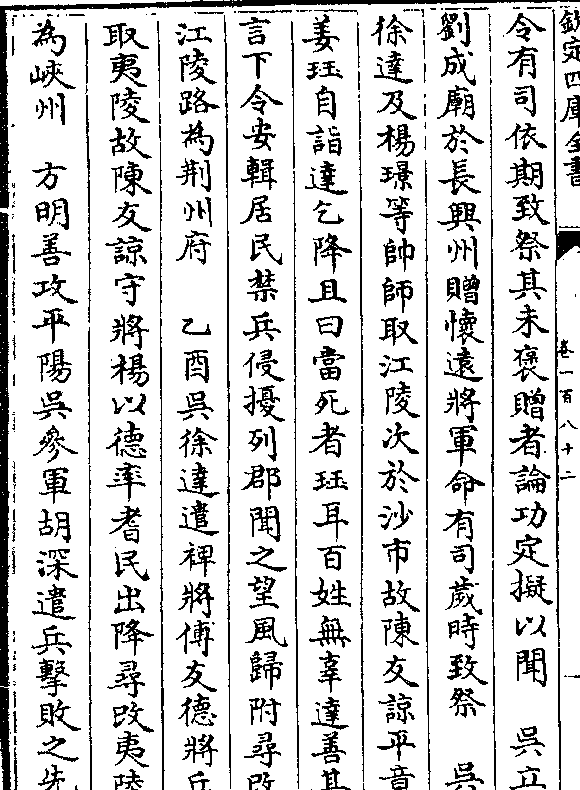 欽定四庫全書
卷一百八十二
令有司依期致祭其未褒贈者論功定擬以聞　吳立
劉成廟於長興州贈懷遠將軍命有司歲時致祭　吳
徐達及楊璟等帥師取江陵次於沙市故陳友諒平章
姜珏自詣達乞降且曰當死者珏耳百姓無辜達善其
言下令安輯居民禁兵侵擾列郡聞之望風歸附尋改
江陵路為荆州府　乙酉吳徐達遣裨將傅友德將兵
取夷陵故陳友諒守將楊以德率耆民出降尋改夷陵
為峽州　方明善攻平陽吳參軍胡深遣兵擊敗之先